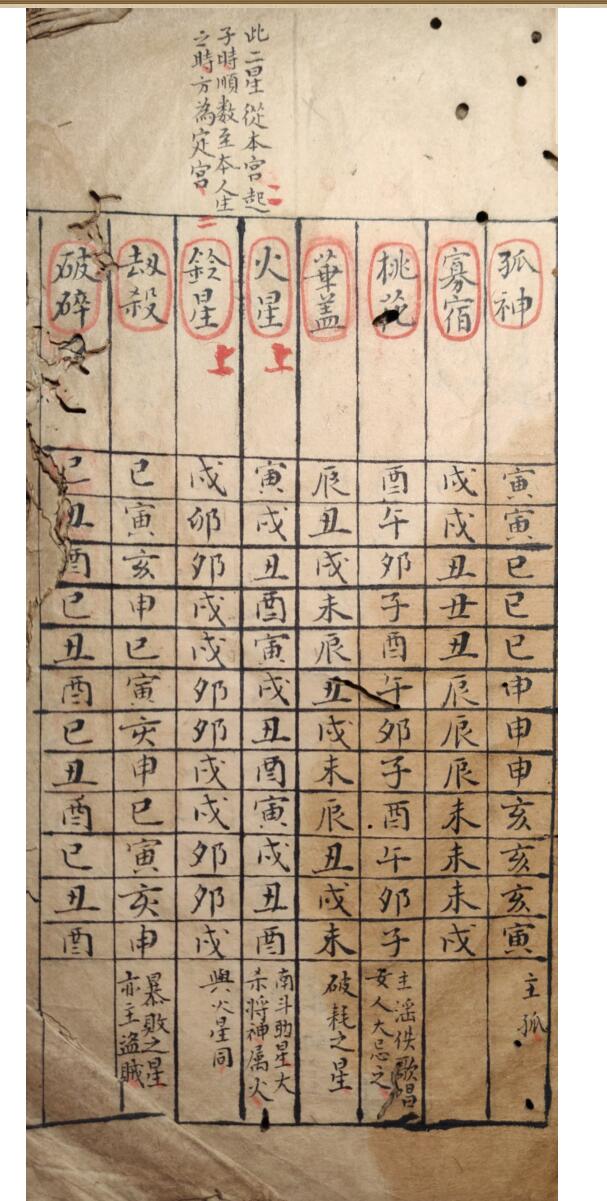 此二星從本宮起
子時順数至本人生
之時方為定宮
孤神
寅寅巳巳巳申申申亥亥亥寅
主孤
寡宿
戌戌丑丑丑辰辰辰未未未戌
桃花
酉午卯子酉午卯子酉午卯子
主滛佚歌唱
女人大忌之
華盖
辰丑戌未辰丑戌未辰丑戌未
破耗之星
火星
上
寅戌丑酉寅戌丑酉寅戌丑酉
南斗助星大
杀将神属火
鈴星
上
戌卯卯戌戌卯卯戌戌卯卯戌
與火星同
劫殺
巳寅亥申巳寅亥申巳寅亥申
暴敗之星
亦主盗賊
破碎
巳丑酉巳丑酉巳丑酉巳丑酉